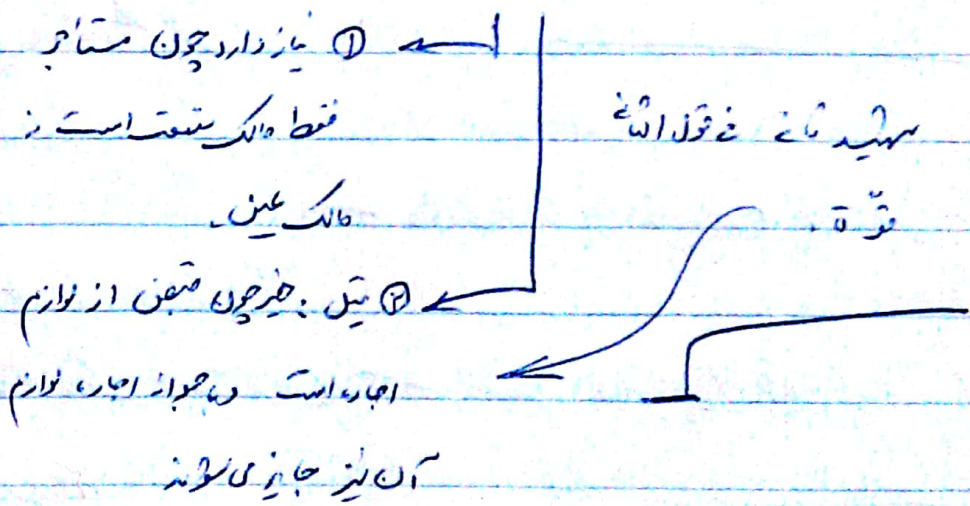 ① نیاز دارد چون مستأجر
فقط مالک منفعت است نه
مالک عین.
② قیل: خیر چون قبض از لوازم
اجاره است و با جواز اجاره، لوازم
آن نیز جایز می‌شوند
شهید ثانی فی قول الثانی
قوّة.